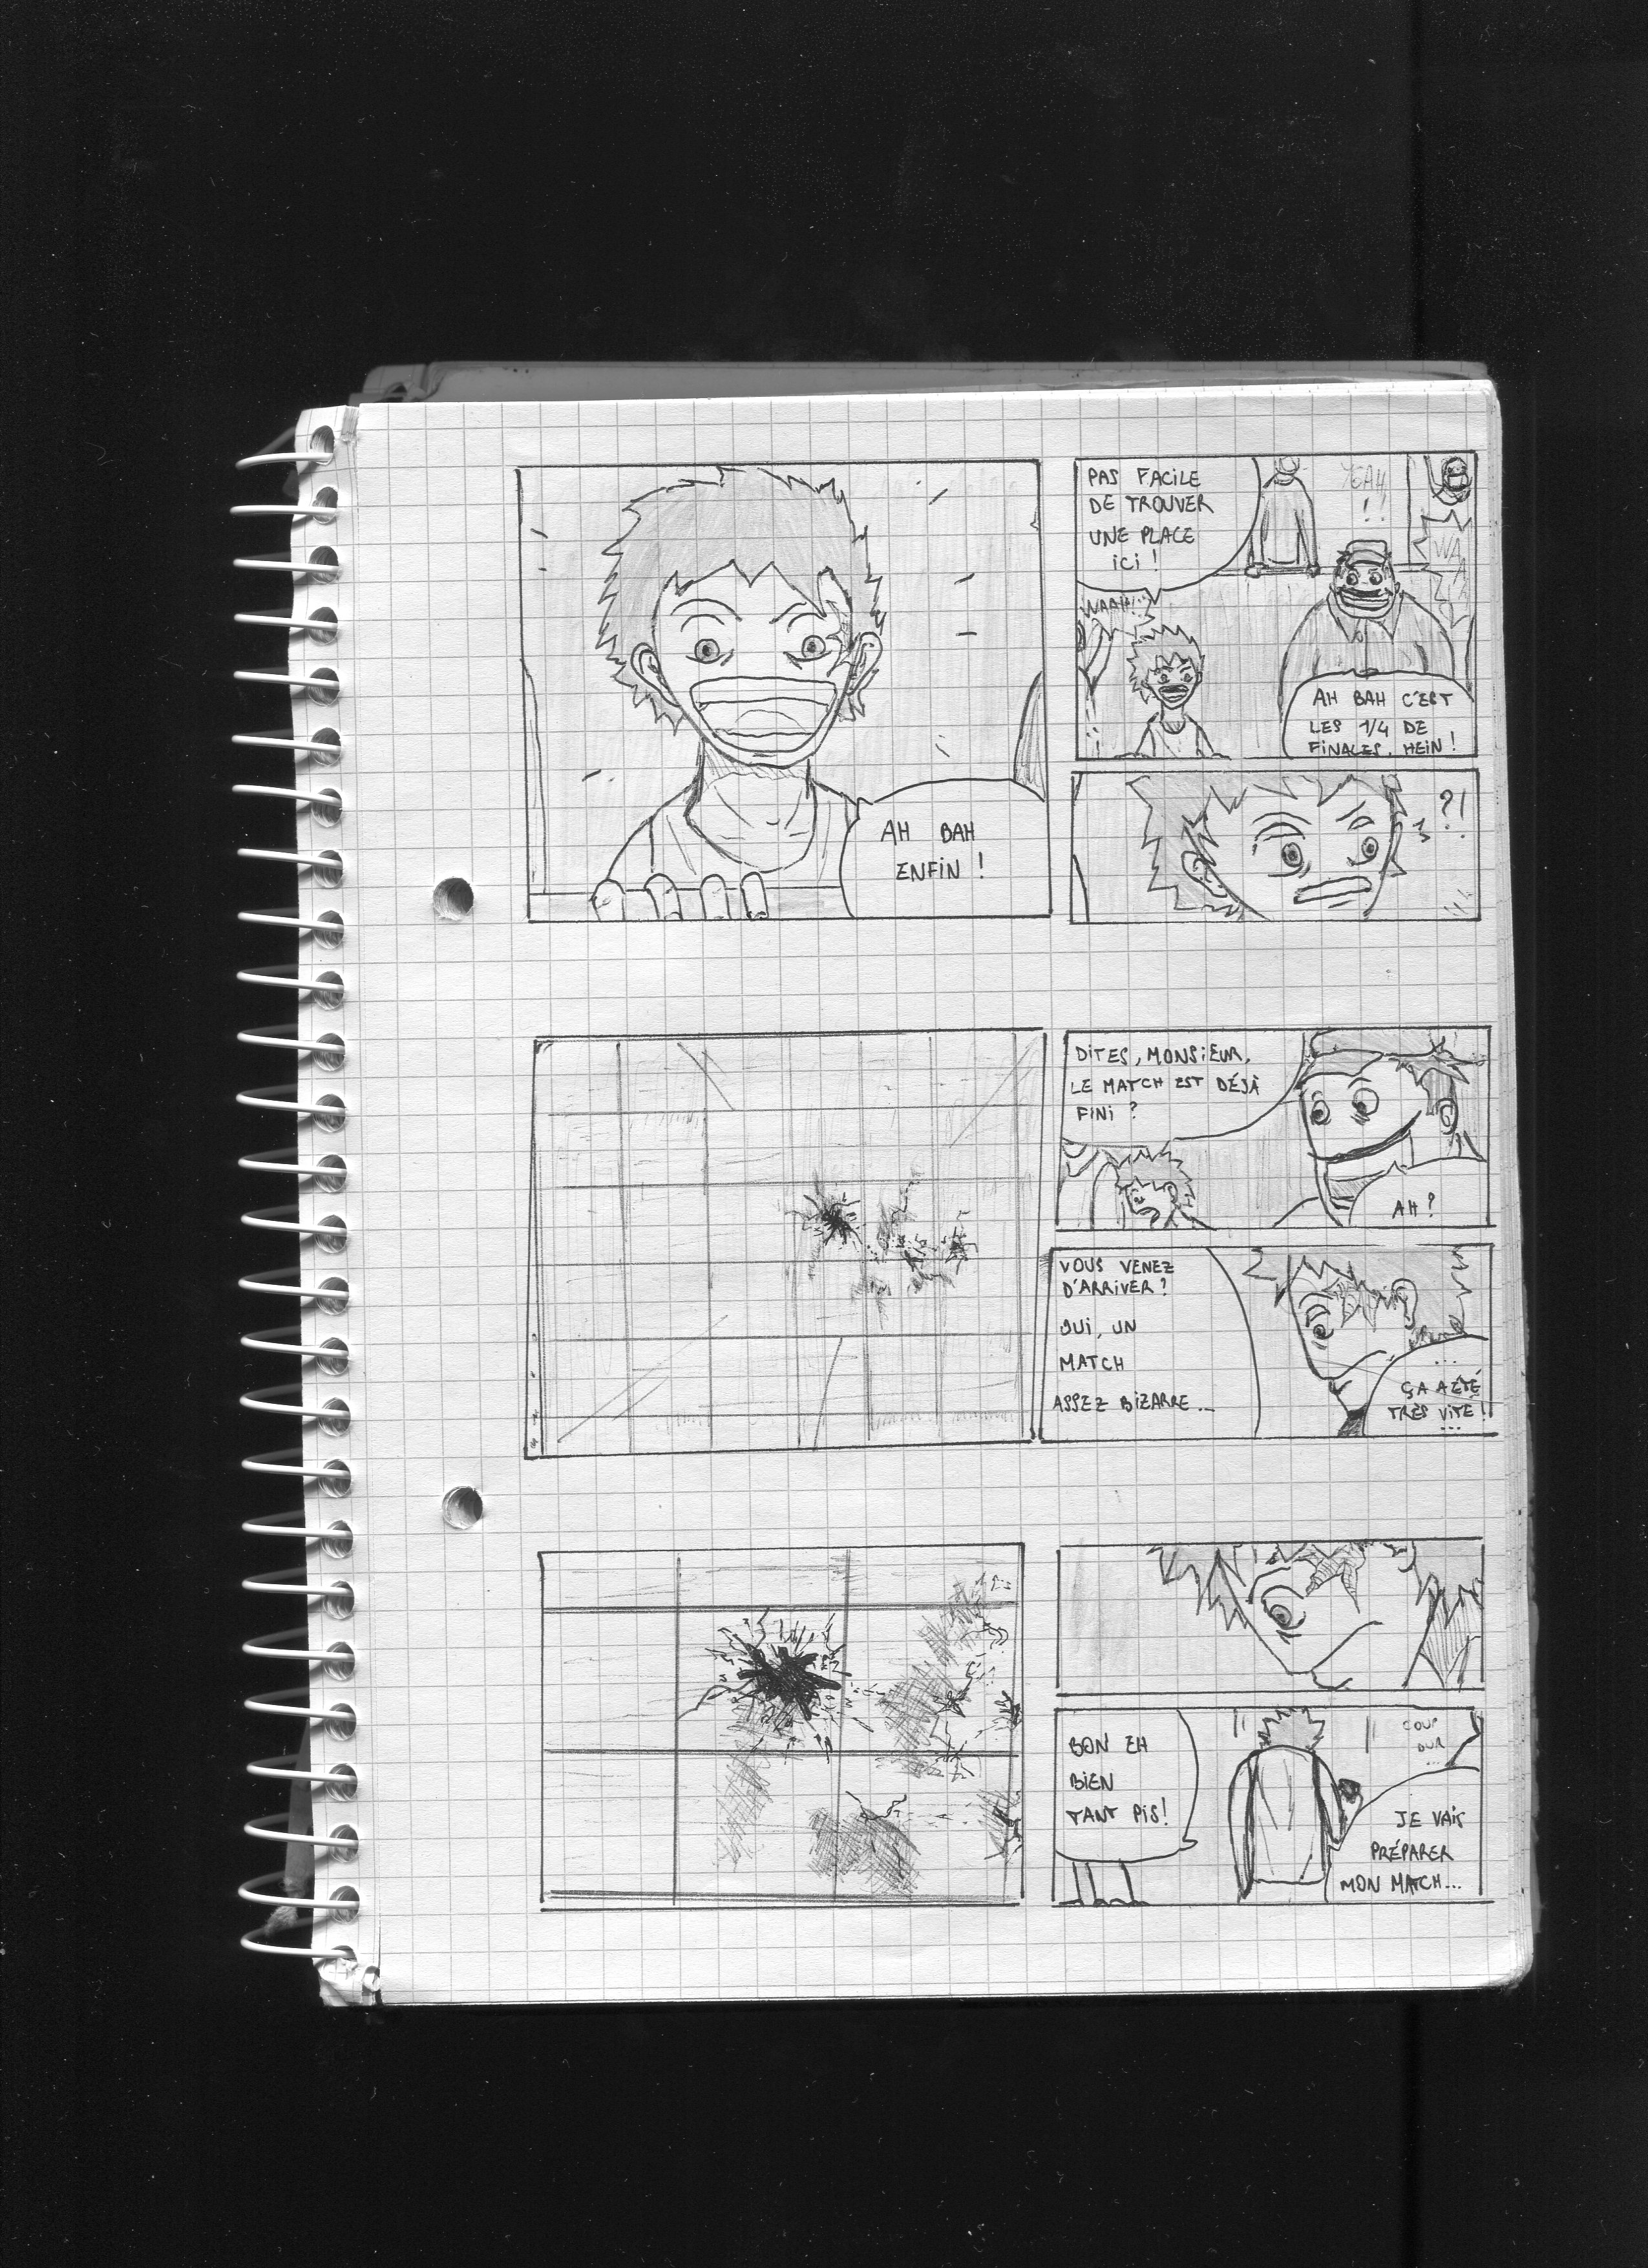 AH BAH
ENFIN !
PAS FACILE
DE TROUVER
UNE PLACE
ICI !
YEAH
!!
WAAH!!
AH BAH C'EST
LES 1/4 DE
FINALES, HEIN !
?!
DITES, MONSIEUR,
LE MATCH EST DÉJÀ
FINI ?
AH ?
VOUS VENEZ
D'ARRIVER ?
OUI, UN
MATCH
ASSEZ BIZARRE...
...
ÇA A ÉTÉ
TRÈS VITE !
...
BON EH
BIEN
TANT PIS !
COUP
DUR
...
JE VAIS
PRÉPARER
MON MATCH...